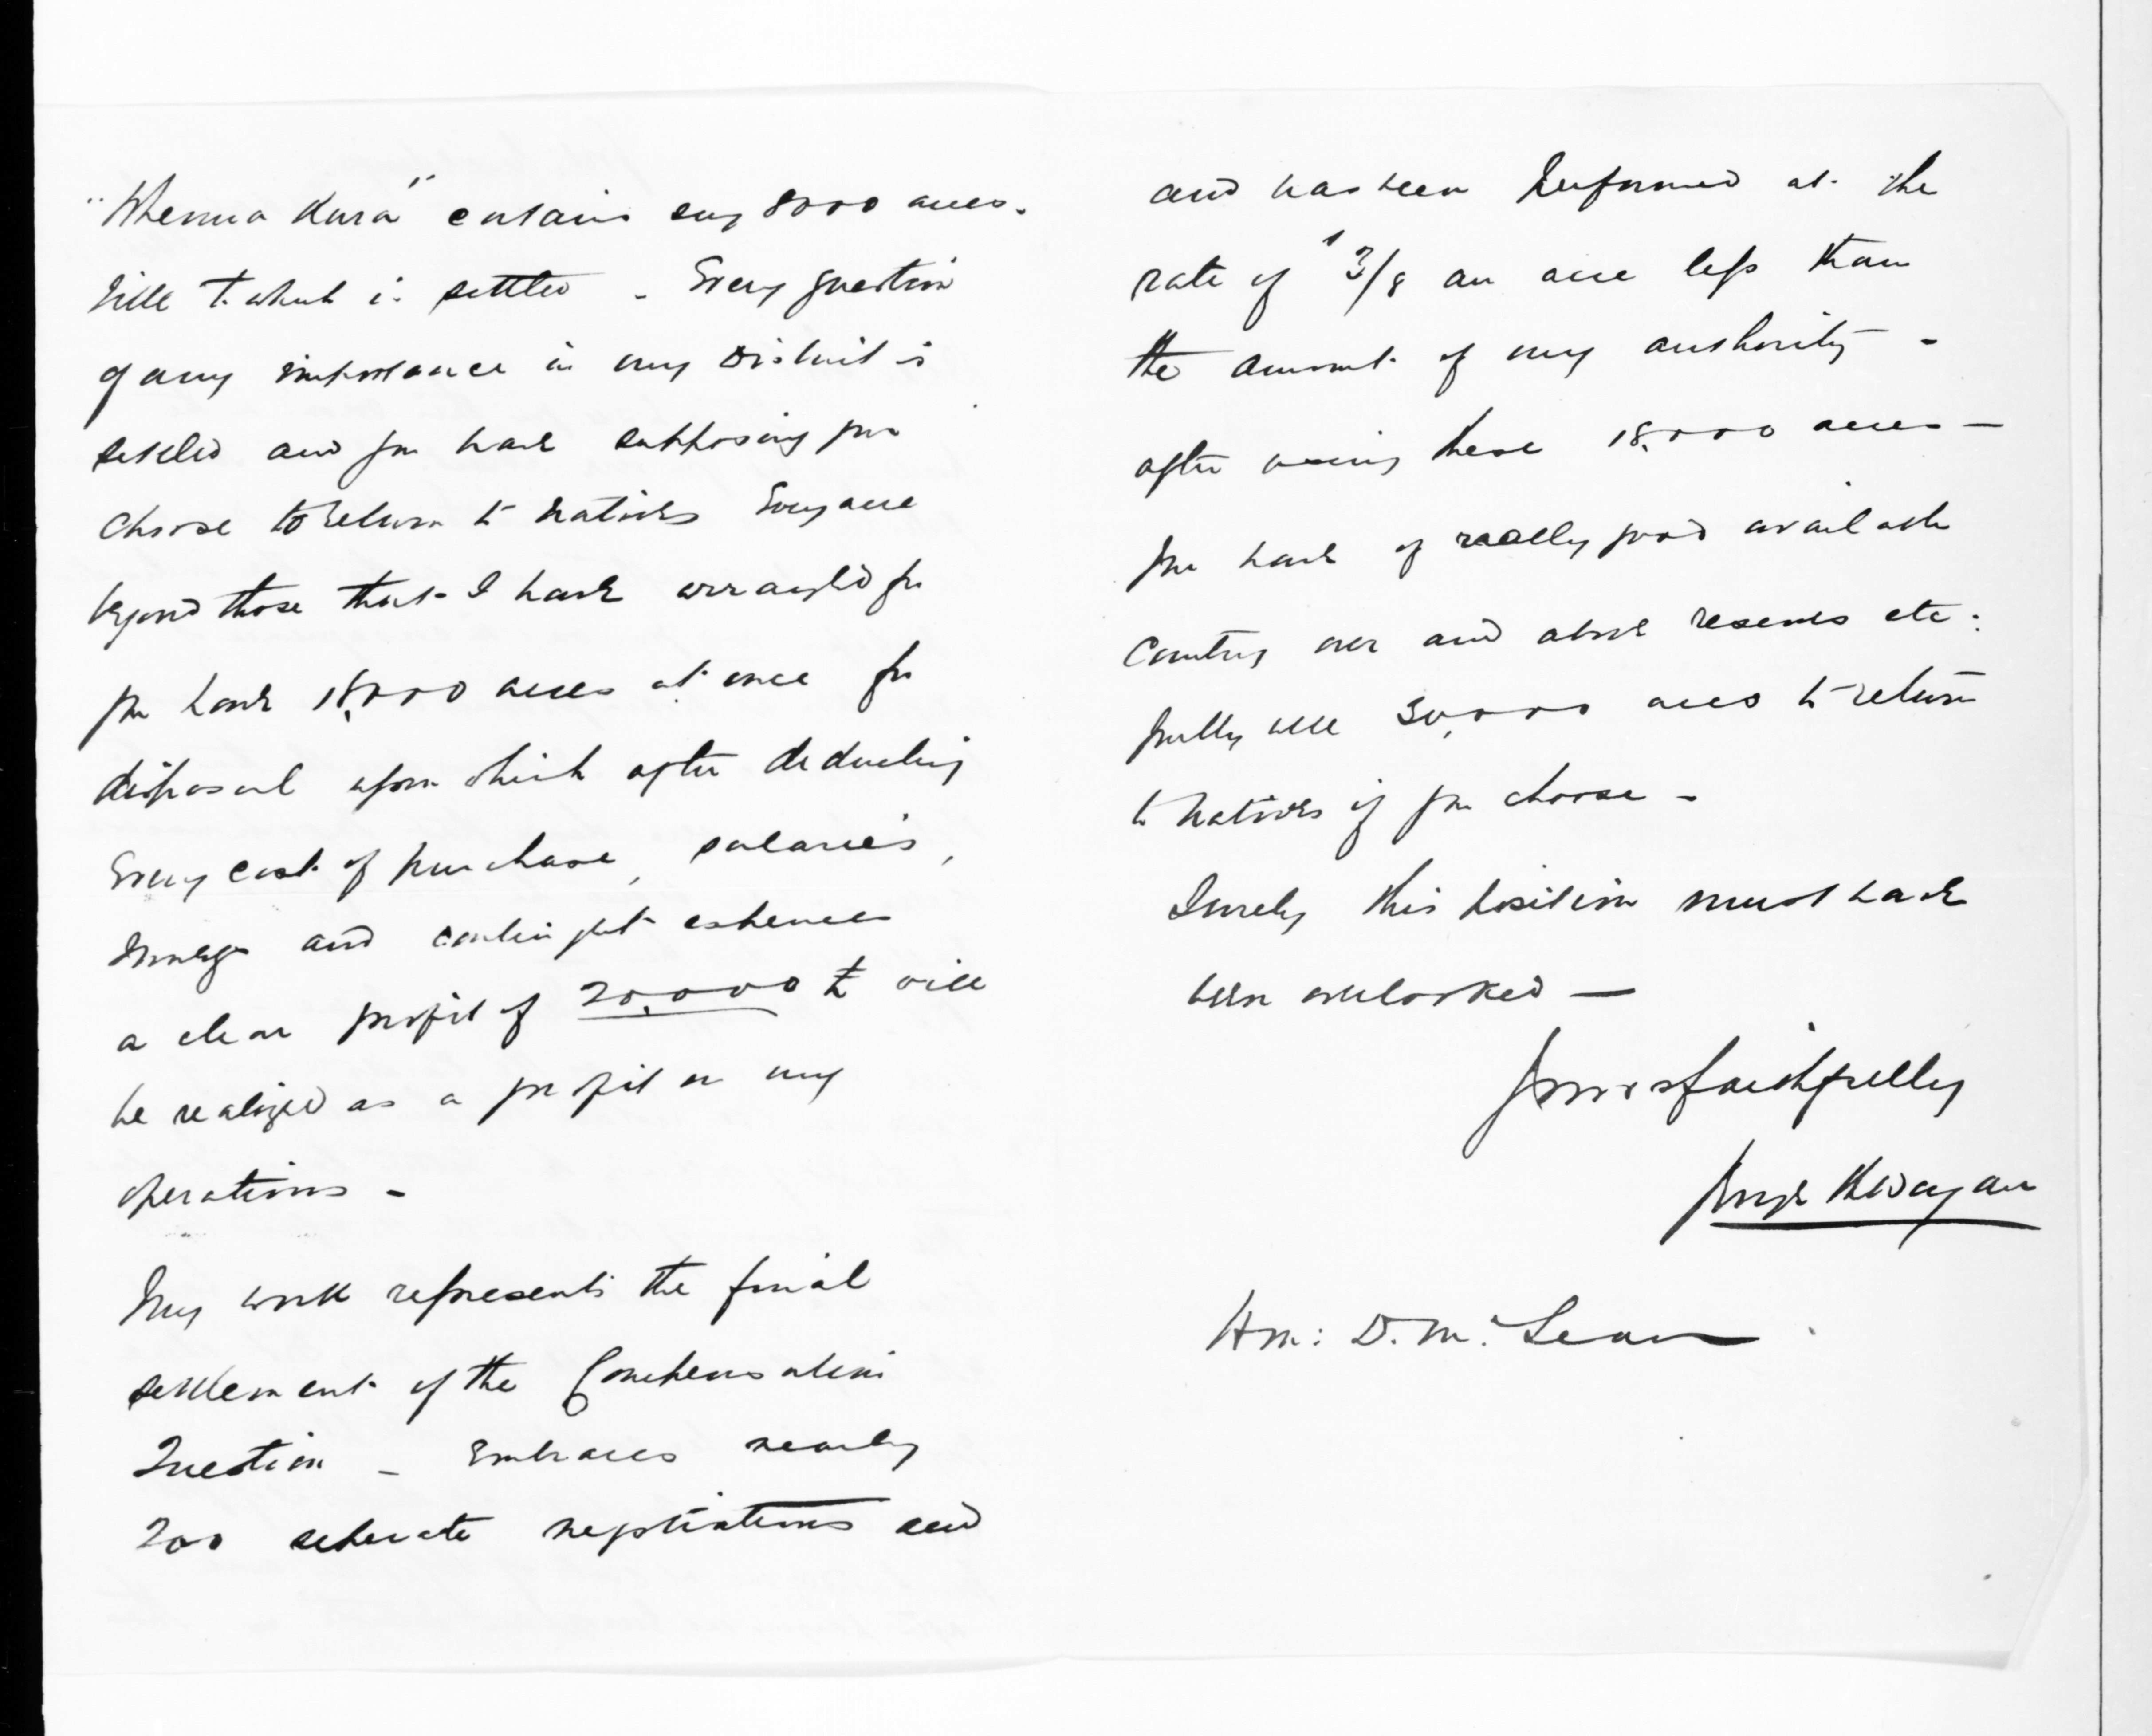 "Whenua Kura" contains say 8000 acres.
title to which is settled - Every question
of any importance in my District is
settled and you have supposing you
choose to return to natives Every acre
beyond those that I have arranged for
you have 18,000 acres at once for
disposal upon which after deducting
Every cost of purchase, salaries,
surveys and contingent expences
a clear profit of 20,000 £ will
be realized as a profit on my
operations -
My work represents the final
settlement of the Compensation
Question - Embraces nearly
200 seperate negotiations and
and has been performed at the
rate of 3/8 an acre less than
the amount of my authority -
after using these 18.000 acres -
you have of really good available
Country over and above reserves etc:
fully well 30,000 acres to return
to Natives if you choose -
Surely this position must have
been overlooked -
Yours faithfully
George
Hon: D. McLean